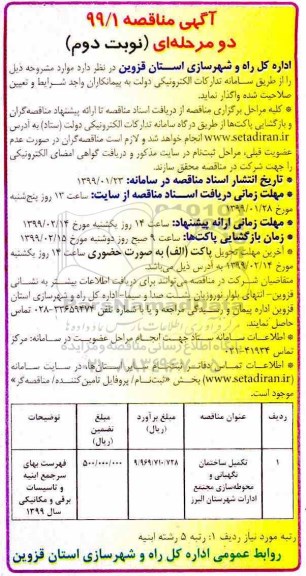 آگهی مناقصه ۹۹/۱
دو مرحله‌ای (نوبت دوم)
اداره کل راه و شهرسازی استان قزوین در نظر دارد موارد مشروحه ذیل
را از طریق سامانه تدارکات الکترونیکی دولت به پیمانکاران واجد شرایط و تعیین
صلاحیت شده واگذار نماید.
* کلیه مراحل برگزاری مناقصه از دریافت اسناد مناقصه تا ارائه پیشنهاد مناقصه‌گران
و بازگشایی پاکت‌ها از طریق درگاه سامانه تدارکات الکترونیکی دولت (ستاد) به آدرس
www.setadiran.ir انجام خواهد شد و لازم است مناقصه‌گران در صورت عدم
عضویت قبلی، مراحل ثبت‌نام در سایت مذکور و دریافت گواهی امضای الکترونیکی
را جهت شرکت در مناقصه محقق سازند.
* تاریخ انتشار اسناد مناقصه در سامانه: ۱۳۹۹/۰۱/۲۳
* مهلت زمانی دریافت اسناد مناقصه از سایت: ساعت ۱۳ روز پنج‌شنبه
مورخ ۱۳۹۹/۰۱/۲۸
* مهلت زمانی ارائه پیشنهاد: ساعت ۱۴ روز یکشنبه مورخ ۱۳۹۹/۰۲/۱۴
زمان بازگشایی پاکت‌ها: ساعت ۹ صبح روز دوشنبه مورخ ۱۳۹۹/۰۲/۱۵
* آخرین مهلت تحویل پاکت (الف) به صورت حضوری ساعت ۱۴ روز یکشنبه
مورخ ۱۳۹۹/۰۲/۱۴ به آدرس ذیل می‌باشد.
متقاضیان شرکت در مناقصه می‌توانند برای دریافت اطلاعات بیشتر به نشانی
قزوین- انتهای بلوار نوروزیان پشت صدا و سیما اداره کل راه و شهرسازی استان
قزوین اداره پیمان و رسیدگی مراجعه و یا با شماره تلفن ۳۳۶۵۹۴۷۴-۰۲۸ تماس
حاصل نمایند.
* اطلاعات تماس سامانه ستاد جهت انجام مراحل عضویت در سامانه: مرکز
تماس ۴۱۹۳۴-۰۲۱
* اطلاعات تماس دفاتر ثبت‌نام سایر استان‌ها، در سایت سامانه
(www.setadiran.ir) بخش «ثبت‌نام/ پروفایل تامین‌کننده/ مناقصه‌گر»
موجود است.
ردیف عنوان مناقصه مبلغ برآورد (ریال) مبلغ تضمین (ریال) توضیحات
۱ تکمیل ساختمان نگهبانی و محوطه‌سازی مجتمع ادارات شهرستان البرز ۹/۹۶۹/۷۱۰/۷۲۸ ۵۰۰/۰۰۰/۰۰۰ فهرست بهای سرجمع ابنیه و تاسیسات برقی و مکانیکی سال ۱۳۹۹
رتبه مورد نیاز ردیف ۱: رتبه ۵ رشته ابنیه
روابط عمومی اداره کل راه و شهرسازی استان قزوین